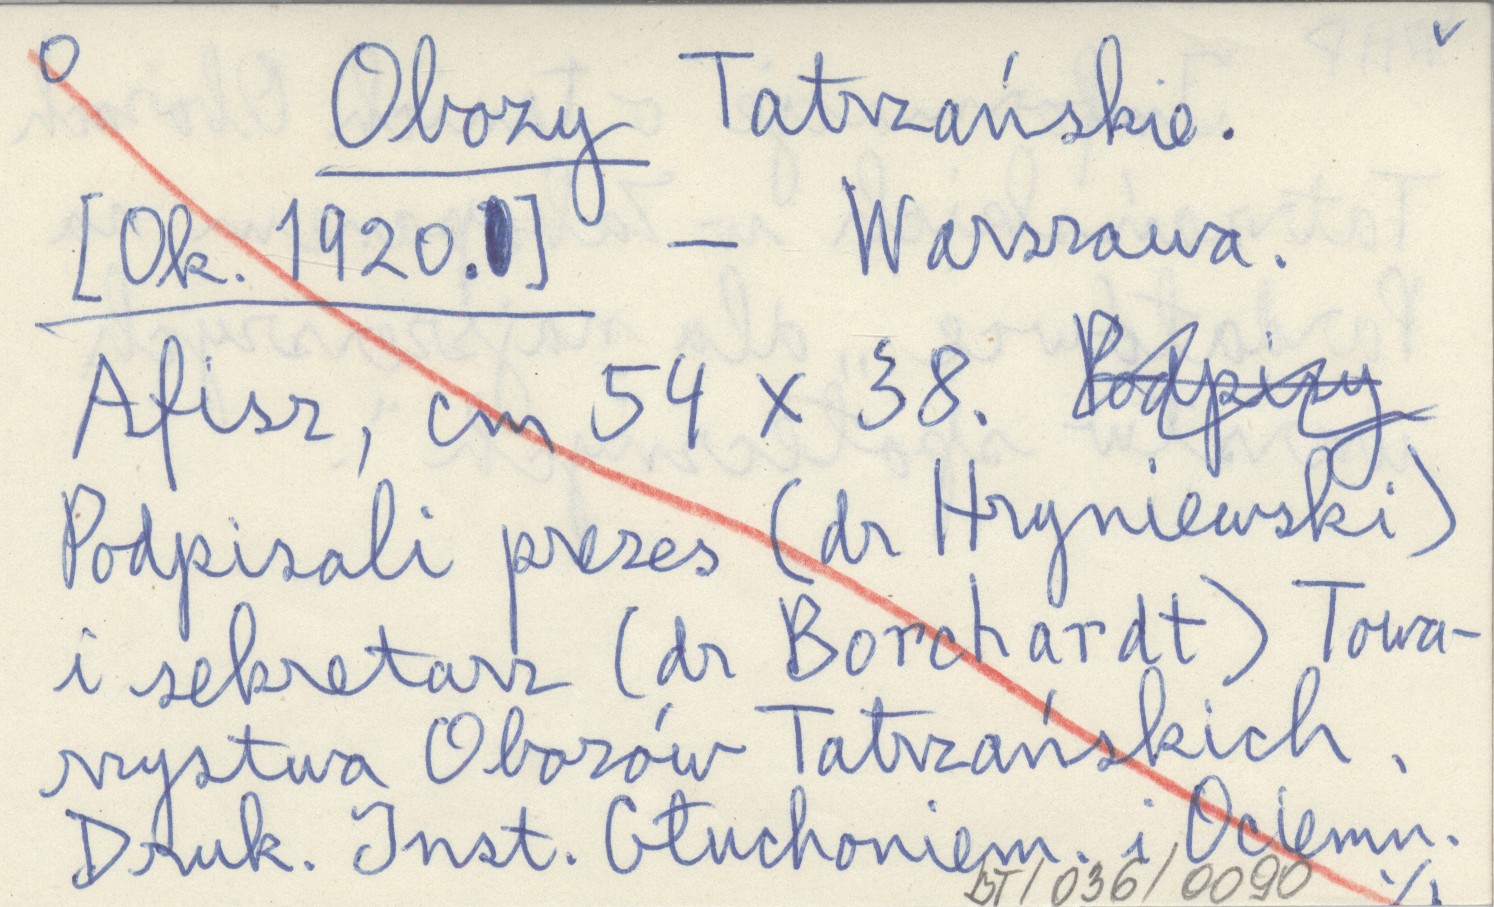 O
Obozy Tatrzańskie.
[Ok. 1920.] – Warszawa.
Afisz, cm 54 x 38. Podpisy
Podpisali prezes (dr Hryniewski)
i sekretarz (dr Borchardt) Towa-
rzystwa Obozów Tatrzańskich.
Druk. Inst. Głuchoniem. i Ociemn.
DT/036/0090 ·/.